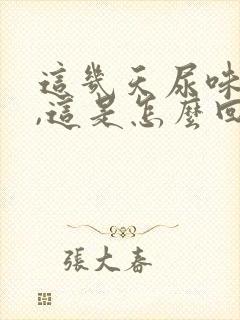 這幾天尿味
,這是怎麼回
張大春